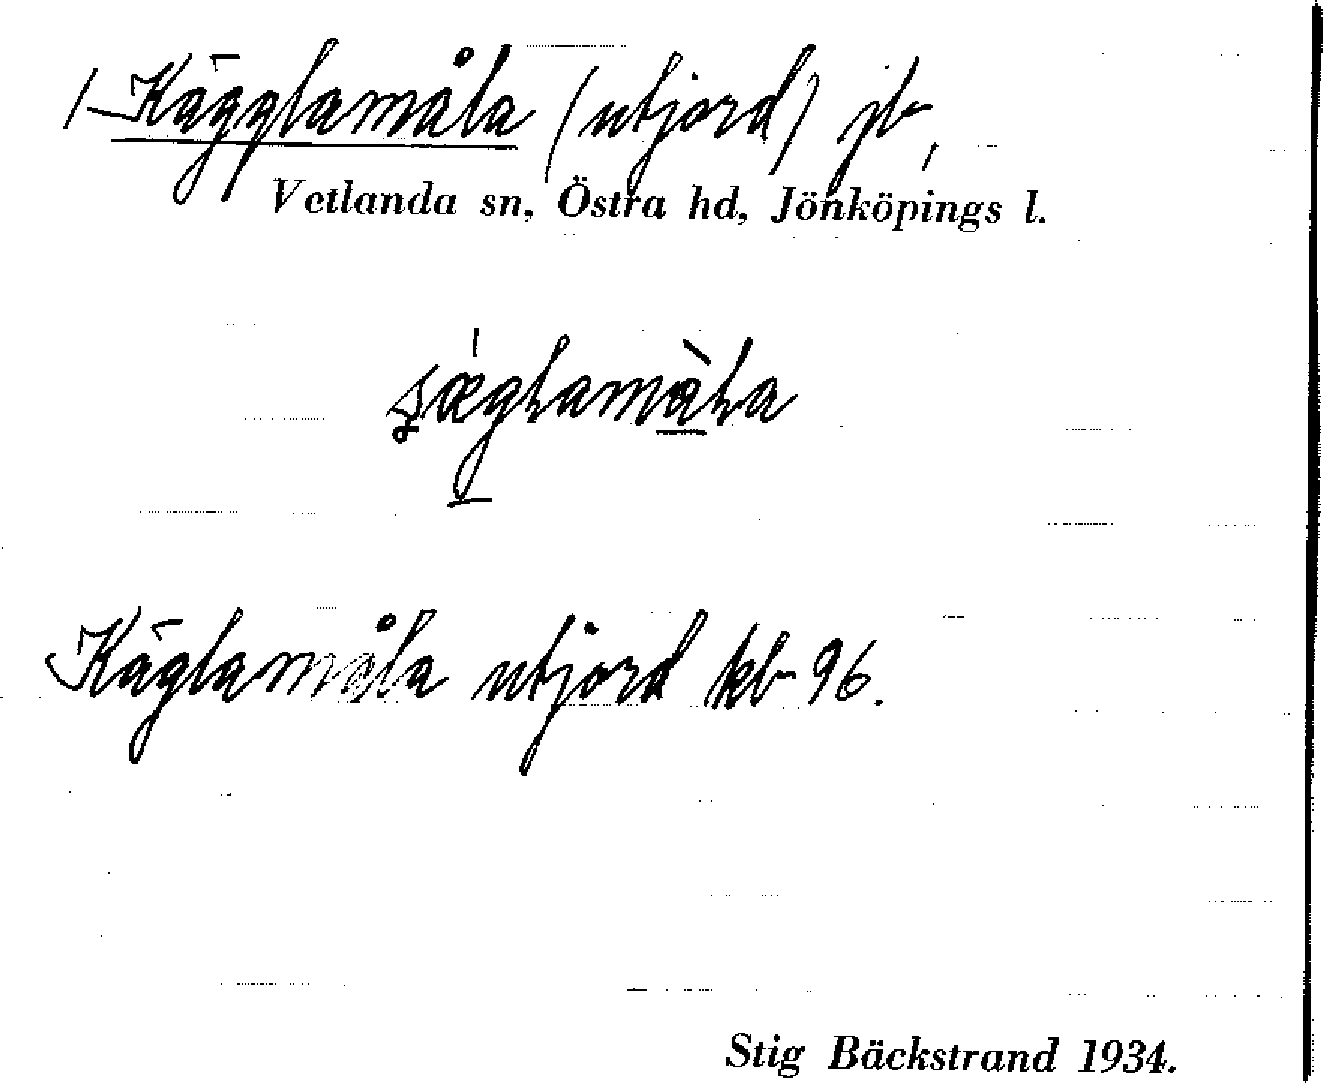 Kägglamåla (utjord) jb,
Vetlanda sn, Östra hd, Jönköpings l.
Käglamåla utjord kb 96.
Stig Bäckstrand 1934.